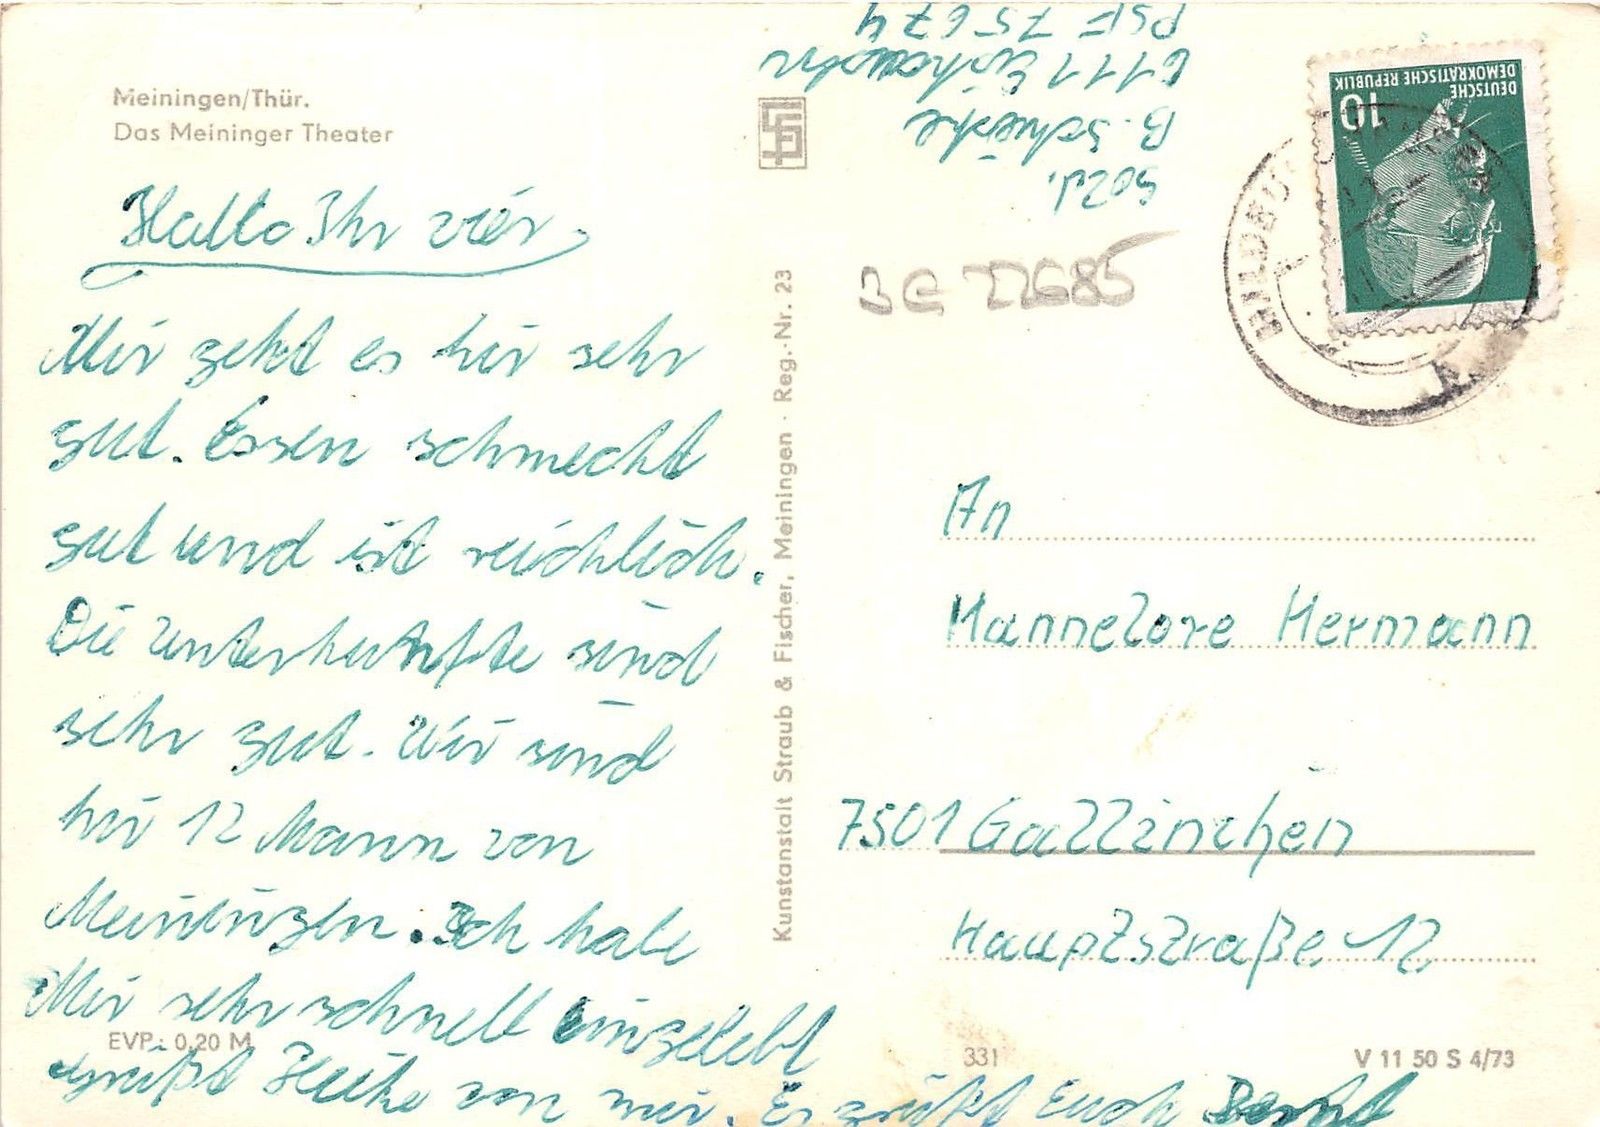 Meiningen/Thür.
Das Meininger Theater
Hallo Ihr vier,
Mir geht es hir sehr
gut. Essen schmeckt
gut und ist reichlich.
Die Unterkunfte sind
sehr gut. Wir sind
hir 12 Mann von
Meiningen. Ich habe
Mir sehr schnell eingelebt
EVP: 0,20 M
grüßt Heike von mir. Es grüßt Euch Bernd
Kunstanstalt Straub & Fischer, Meiningen · Reg.-Nr. 23
Sold.
B.
6111
PSF 75674
BG 22685
DEUTSCHE
DEMOKRATISCHE REPUBLIK
10
An
Hannelore Hermann
7501 Gallinchen
Hauptstraße 12
331
V 11 50 S 4/73